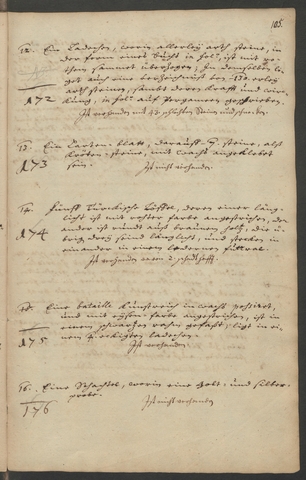 185.
12. Ein Ladechen, worin allerley arth steine, in
der form eines Buchs in fol: ist mit ro-
them sammet überzogen; In demselben li-
get auch eine Verzeichnüß der 130.erley
arth steinen, sambt deren Krafft und wir-
172 kung, in fol: auff Pergamen geschrieben.
Ist vorhanden mit
13. Ein Carten-blatt, darauff 7. steine, alß
Kroten-steine, mit wachs angeklebet
173 sein.
Ist nicht vorhanden.
14. Fünff Türckische Löffel, deren einer läng-
licht ist mit rother farbe angestrichen, der
174 ander ist rundt auß braunen holtz, die ü-
brig drey sein länglicht, und stecken in
einander in einem ledernen futtral.
Ist vorhanden
15. Eine bataille künstreich in wachs possirt,
und mit farbe angestrichen, ist in
einem schwartzen rahm gefast; ligt in ei-
175 nem 4.eckigten ladechen.
Ist vorhanden.
16. Eine Schachtel, worin eine Golt- und silber-
176 probe.
Ist nicht vorhanden